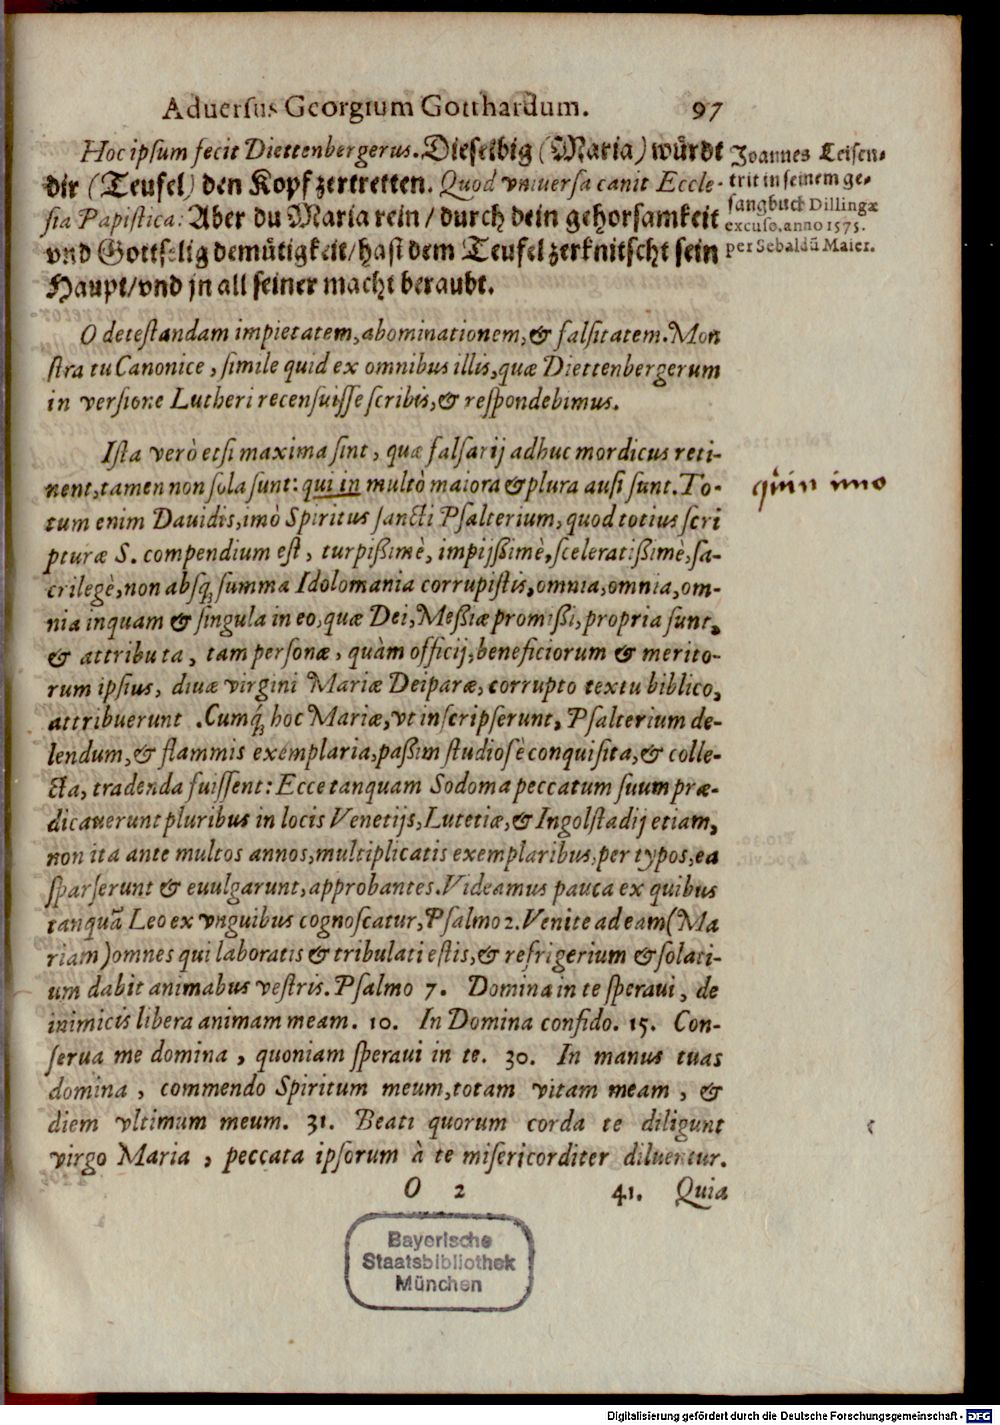 Aduersus Georgium Gotthardum. 97
Hoc ipsum fecit Diettenbergerus. Dieselbig (Maria) würdt
dir (Teufel) den Kopf zertretten. Quod vniuersa canit Eccle-
sia Papistica: Aber du Maria rein / durch dein gehorsamkeit
vnd Gottselig demütigkeit / hast dem Teufel zerknitscht sein
Haupt / vnd jn all seiner macht beraubt.
Joannes Leisen-
trit in seinem ge-
sangbuch Dillingæ
excuso, anno 1575.
per Sebaldũ Maier.
O detestandam impietatem, abominationem, & falsitatem. Mon
stra tu Canonice, simile quid ex omnibus illis, quæ Diettenbergerum
in versione Lutheri recensuisse scribis, & respondebimus.
Ista verò etsi maxima sint, quæ falsarij adhuc mordicus reti-
nent, tamen non sola sunt: qui in multò maiora & plura ausi sunt. To-
quin imo
tum enim Dauidis, imò Spiritus sancti Psalterium, quod totius scri
pturæ S. compendium est, turpißimè, impijßimè, sceleratißimè, sa-
crilegè, non absq; summa Idolomania corrupistis, omnia, omnia, om-
nia inquam & singula in eo, quæ Dei, Meßiæ promißi, propria sunt,
& attributa, tam personæ, quàm officij, beneficiorum & merito-
rum ipsius, diuæ virgini Mariæ Deiparæ, corrupto textu biblico,
attribuerunt. Cumq́; hoc Mariæ, vt inscripserunt, Psalterium de-
lendum, & flammis exemplaria, paßim studiosè conquisita, & colle-
cta, tradenda fuissent: Ecce tanquam Sodoma peccatum suum præ-
dicauerunt pluribus in locis Venetijs, Lutetiæ, & Ingolstadij etiam,
non ita ante multos annos, multiplicatis exemplaribus, per typos, ea
sparserunt & euulgarunt, approbantes. Videamus pauca ex quibus
tanquã Leo ex vnguibus cognoscatur, Psalmo 2. Venite ad eam (Ma
riam) omnes qui laboratis & tribulati estis, & refrigerium & solati-
um dabit animabus vestris. Psalmo 7. Domina in te speraui, de
inimicis libera animam meam. 10. In Domina confido. 15. Con-
serua me domina, quoniam speraui in te. 30. In manus tuas
domina, commendo Spiritum meum, totam vitam meam, &
diem vltimum meum. 31. Beati quorum corda te diligunt
virgo Maria, peccata ipsorum à te misericorditer diluentur.
O 2 41. Quia
Bayerische
Staatsbibliothek
München
Digitalisierung gefördert durch die Deutsche Forschungsgemeinschaft - DFG